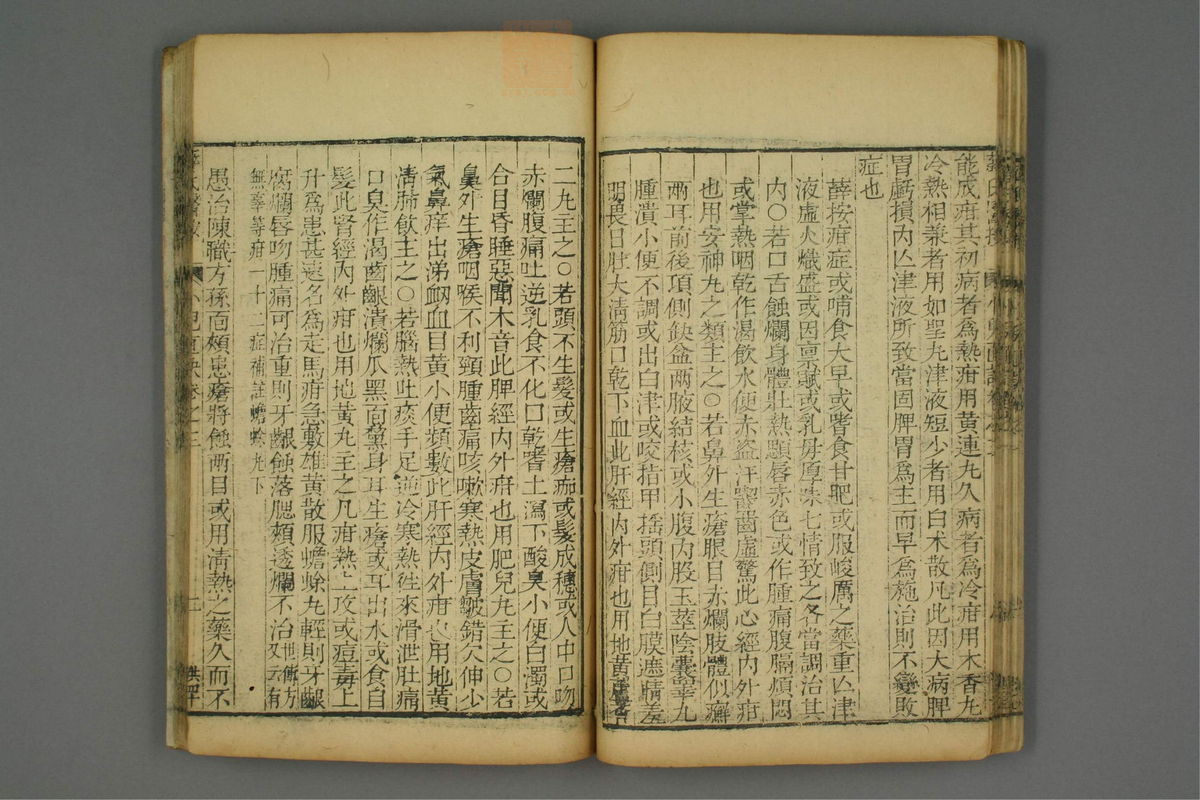 能成疳其初病者為熱疳用黄連丸久病者為冷疳用木香丸
冷熱相兼者用如聖丸津液短少者用白术散凡此因大病脾
胃虧損内亾津液所致當固脾胃為主而早為施治則不變敗
症也
薛按疳症或哺食大早或嗜食甘肥或服峻厲之藥重亾津
液虛火熾盛或因禀賦或乳母厚味七情致之各當調治其
内○若口舌蝕爛身體壯熱顋唇赤色或作腫痛腹膈煩悶
或掌熱咽乾作渴飲水便赤盗汗齧齒虛驚此心經内外疳
也用安神丸之類主之○若鼻外生瘡眼目赤爛肢體似癬
兩耳前後項側缺盆兩腋結核或小腹内股玉莖陰囊睾丸
腫潰小便不調或出白津或咬指甲揺頭側目白膜遮睛羞
明畏日肚大淸筋口乾下血此肝經内外疳也用地黄
二丸主之○若頭不生髮或生瘡痂或髮成穗或人中口吻
赤爛腹痛吐逆乳食不化口乾嗜土瀉下酸臭小便白濁或
合目昏睡惡聞木音此脾經内外疳也用肥兒丸主之○若
鼻外生瘡咽喉不利頸腫齒痛咳嗽寒熱皮膚皴錯欠伸少
氣鼻痒出涕衂血目黄小便頻數此肝經内外疳也用地黄
淸肺飲主之○若腦熱吐痰手足逆冷寒熱徃來滑泄肚痛
口臭作渴齒齦潰爛爪黑面黧身耳生瘡或耳出水或食自
髮此腎經内外疳也用地黄丸主之凡疳熱上攻或痘毒上
升為患甚速名為走馬疳急敷雄黄散服蟾蜍丸輕則牙齦
腐爛唇吻腫痛可治重則牙齦蝕落腮頰透爛不治又云有世傳方
無辜等疳一十二症補註蟾蜍丸下
愚治陳職方孫面頰患瘡將蝕兩目或用淸熱之藥久而不
小兒直訣卷之三